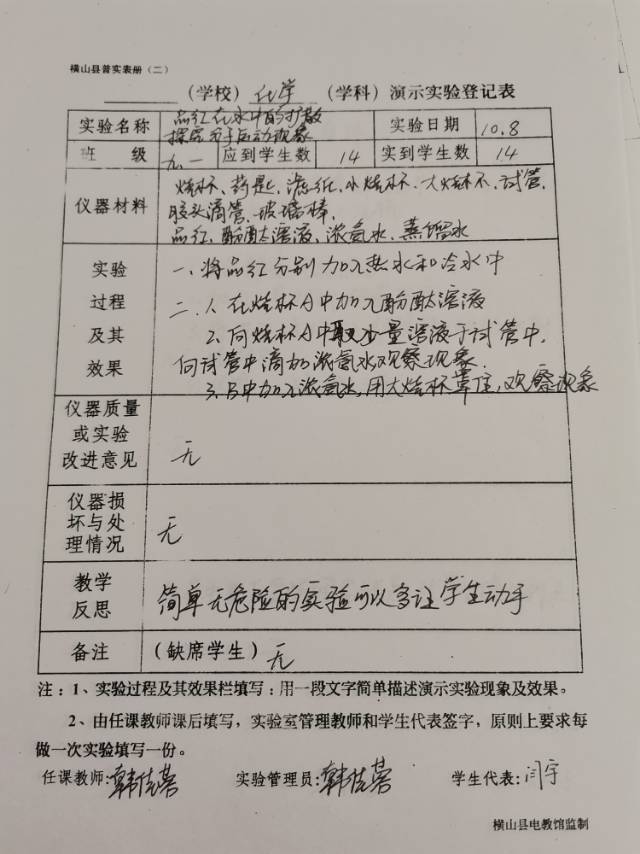 横山县普实表册（二）
（学校）化学（学科）演示实验登记表
实验名称 品红在水中的扩散 探究分子运动现象 实验日期 10.8
班级 九.一 应到学生数 14 实到学生数 14
仪器材料 烧杯、药匙、滤纸、小烧杯、大烧杯、试管、
胶头滴管、玻璃棒、
品红、酚酞溶液、浓氨水、蒸馏水
实验过程及其效果
一、将品红分别加入热水和冷水中
二、1.在烧杯A中加入酚酞溶液
2.向烧杯A中取少量溶液于试管中,
向试管中滴加浓氨水观察现象.
3.B中加入浓氨水,用大烧杯罩住,观察现象
仪器质量或实验改进意见 无
仪器损坏与处理情况 无
教学反思 简单无危险的实验可以多让学生动手
备注 （缺席学生）无
注：1、实验过程及其效果栏填写：用一段文字简单描述演示实验现象及效果。
2、由任课教师课后填写，实验室管理教师和学生代表签字，原则上要求每
做一次实验填写一份。
任课教师:韩佳蓉 实验管理员:韩佳蓉 学生代表:闫宇
横山县电教馆监制